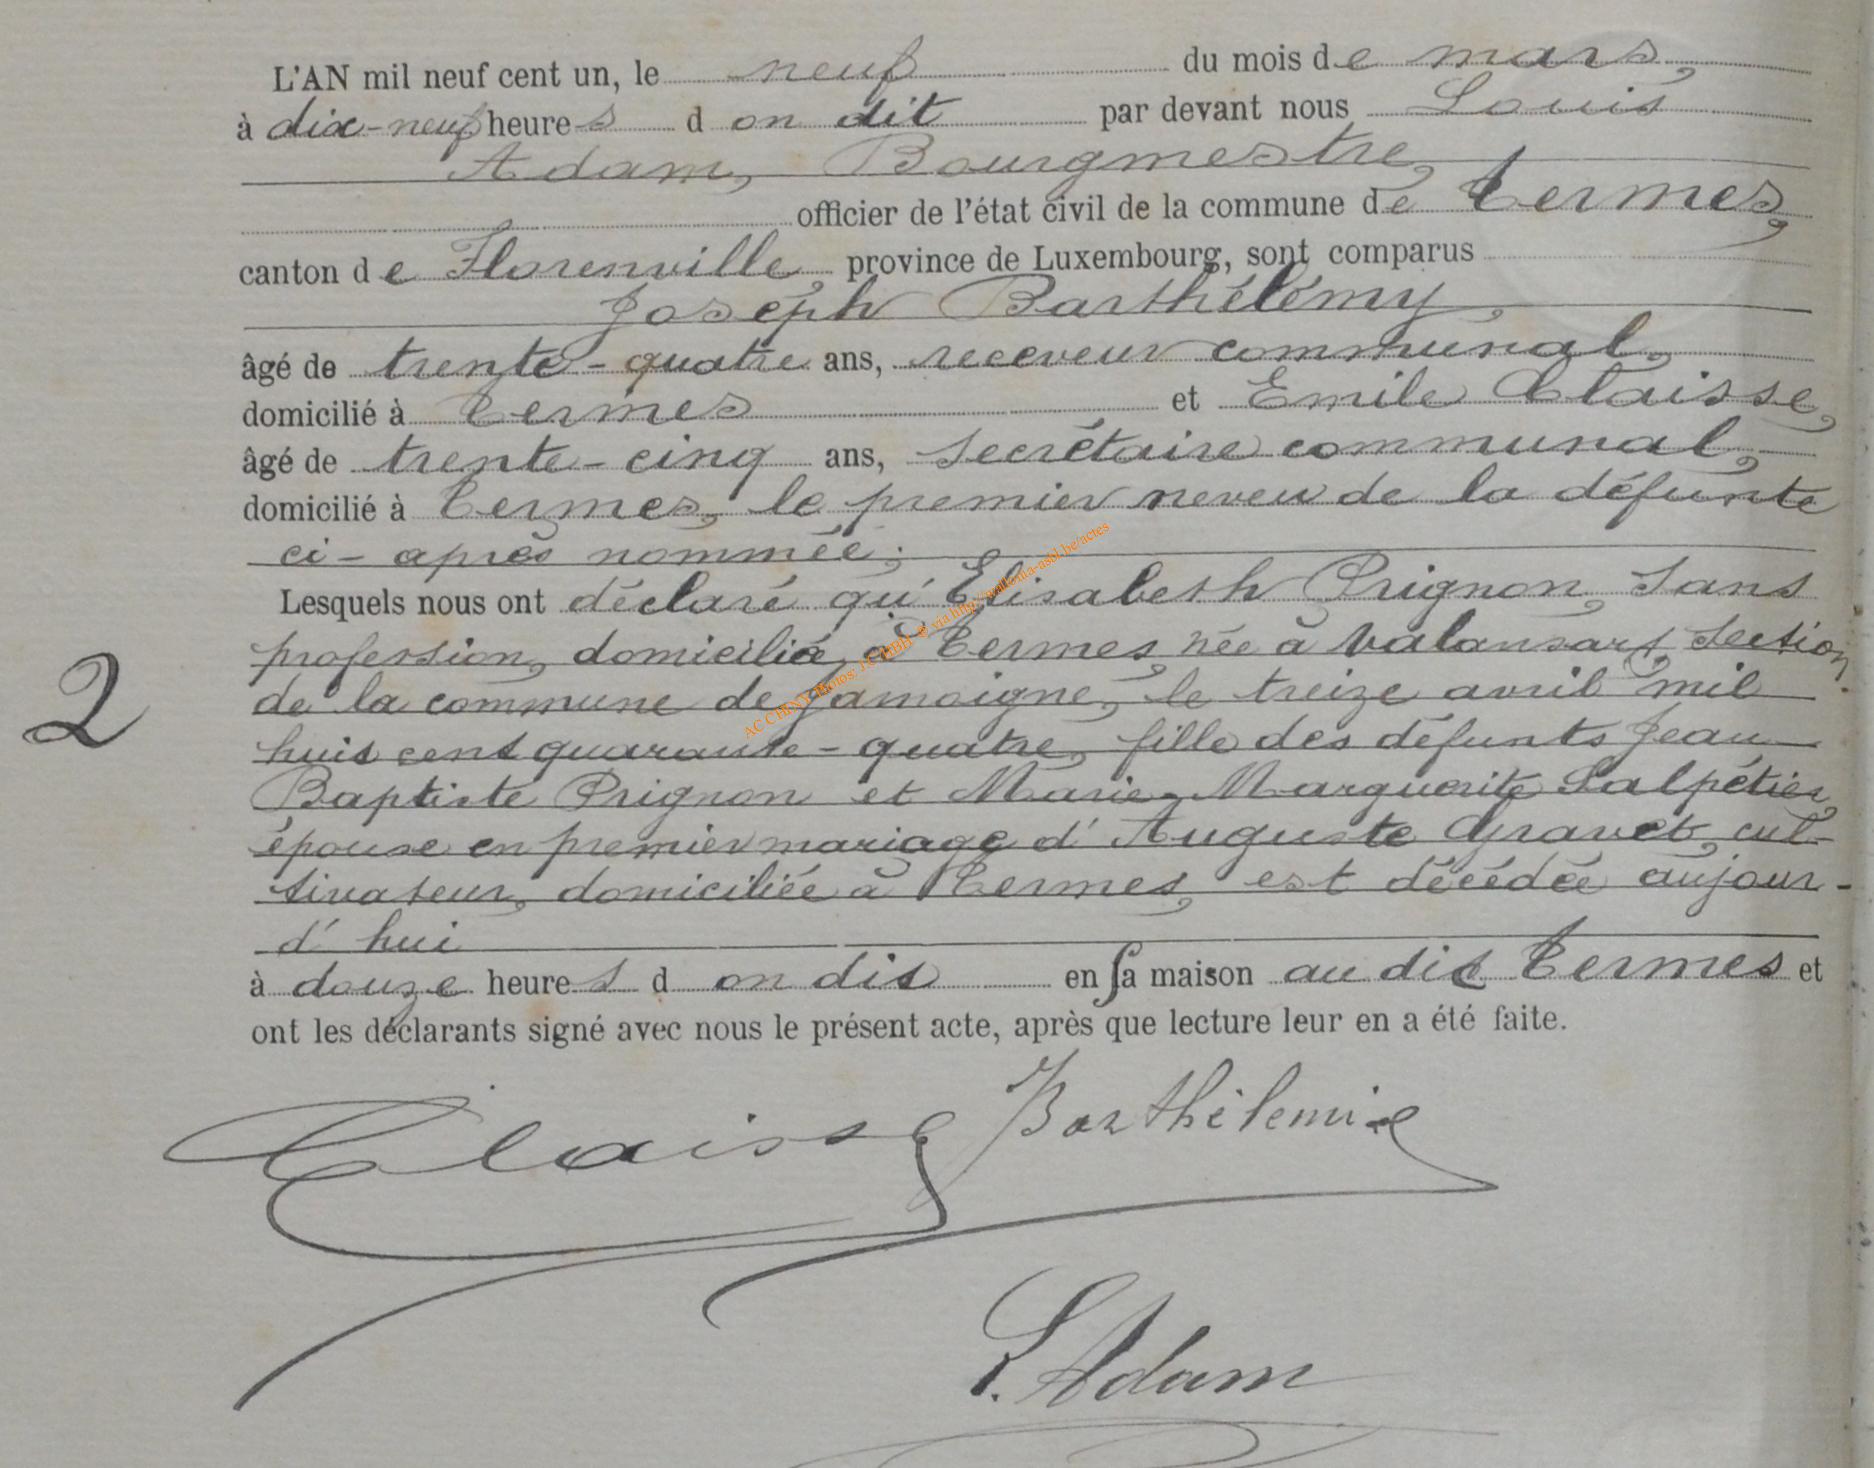 L'AN mil neuf cent un, le neuf du mois de mars,
à dix-neuf heures d on dit par devant nous Louis
Adam, Bourgmestre,
officier de l'état civil de la commune de Termes,
canton de Florenville, province de Luxembourg, sont comparus
Joseph Barthélémy,
âgé de trente-quatre ans, receveur communal,
domicilié à Termes et Emile Claisse,
âgé de trente-cinq ans, secrétaire communal,
domicilié à Termes, le premier neveu de la défunte
ci-après nommée;
Lesquels nous ont déclaré qu'Elisabeth Prignon, sans
profession, domiciliée à Termes, née à Valansart, section
de la commune de Jamoigne, le treize avril mil
2
huit cent quarante-quatre, fille des défunts Jean
Baptiste Prignon et Marie-Marguerite Salpétier,
épouse en premier mariage d'Auguste Gravet, cul-
tivateur, domiciliée à Termes, est décédée aujour-
d'hui
à douze heures d on dit en sa maison au dit Termes et
ont les déclarants signé avec nous le présent acte, après que lecture leur en a été faite.
Claisse Barthélemie
L. Adam
AC CHINY Photos: J.C HBH © via http://wallonia-asbl.be/actes